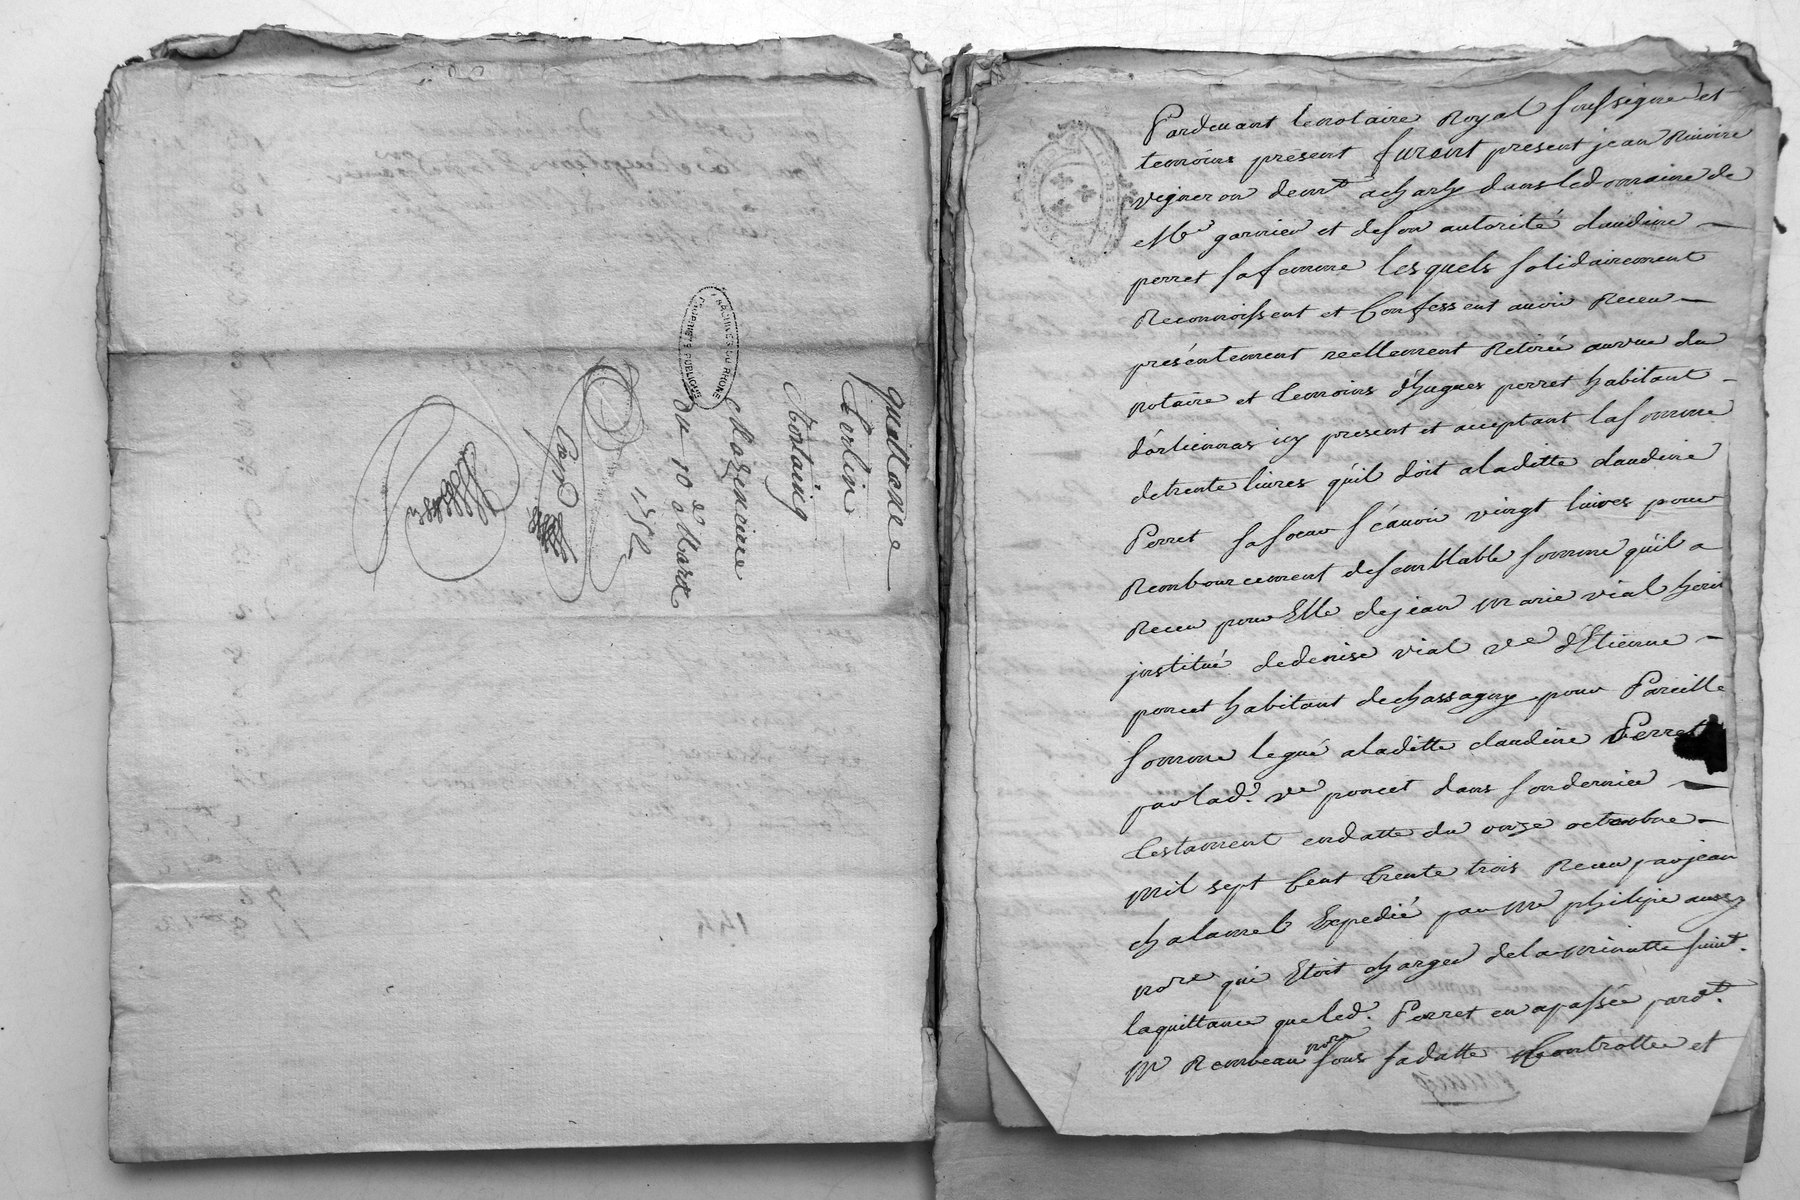 quittance
Terlin
Montaing
Chazenciere
du 10 de Mars
1752
ARCHIVES DU RHONE
PROPRIÉTÉ PUBLIQUE
144
Pardevant le notaire Royal soussigné et
temoins présent furent present jean Riviere
vigneron demt a charly dans le domaine de
Mr garnier et de son autorité claudine
perret sa femme lesquels solidairement
Reconnoissent et Confessent avoir Receu
présentement reellement Retirée au vue du
notaire et temoins d'hugues perret habitant
d'orlienas icy present et acceptant la somme
de trente livres qu'il doit a laditte claudine
Perret sa soeur sçavoir vingt livres pour
Rembourcement de semblable somme qu'il a
Receu pour Elle de jean marie vial herit
institué de denise vial ve d'Etienne
poncet habitant de chassagny pour Pareille
somme legué a laditte claudine Perret
par lad. ve poncet dans son dernier
testament en datte du onze octobre
mil sept Cent trente trois Receu par jean
chalamel Expedié par me philipe aussy
nore qui Etoit chargé de la minutte suivt
la quittance que led. Perret en a passée pardt
m Rembeau nore sous sa datte Controttée et